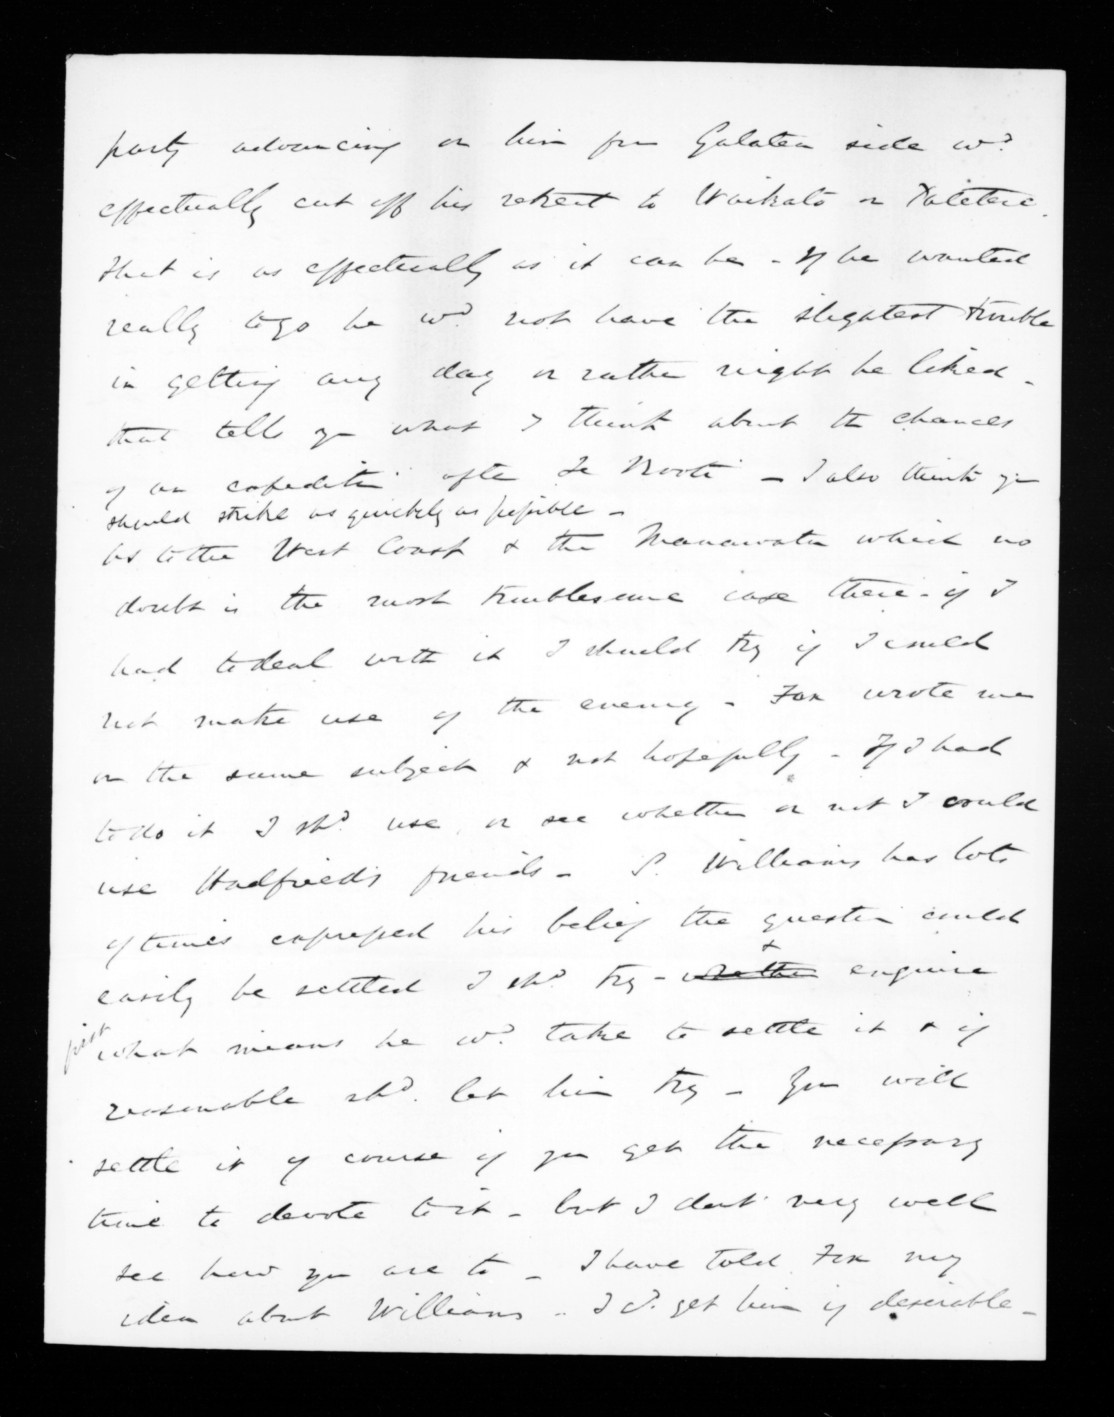 party advancing on him from Galatea side wd.
effectually cut off his retreat to Waikato or Patetere.
that is as effectually as it can be - If he wanted
really to go he wd. not have the slightest trouble
in getting any day or rather night he liked -
that tells you what I think about the chances
of an expedition after Te Kooti - I also think you
should strike as quickly as possible -
As to the West Coast & the Manawatu which no
doubt is the most troublesome case there - if I
had to deal with it I should try if I could
not make use of the enemy - Fox wrote me
on the same subject & not hopefully - If I had
to do it I shd. use, or see whether or not I could
use Hadfield's friends - S. Williams has lots
of times expressed his belief the question could
easily be settled I shd. try - & enquire
first what means he wd. take to settle it & if
reasonable shd. let him try - You will
settle it of course if you get the necessary
time to devote to it - but I dont very well
see how you are to - I have told Fox my
idea about Williams - I cd. get him if desirable -